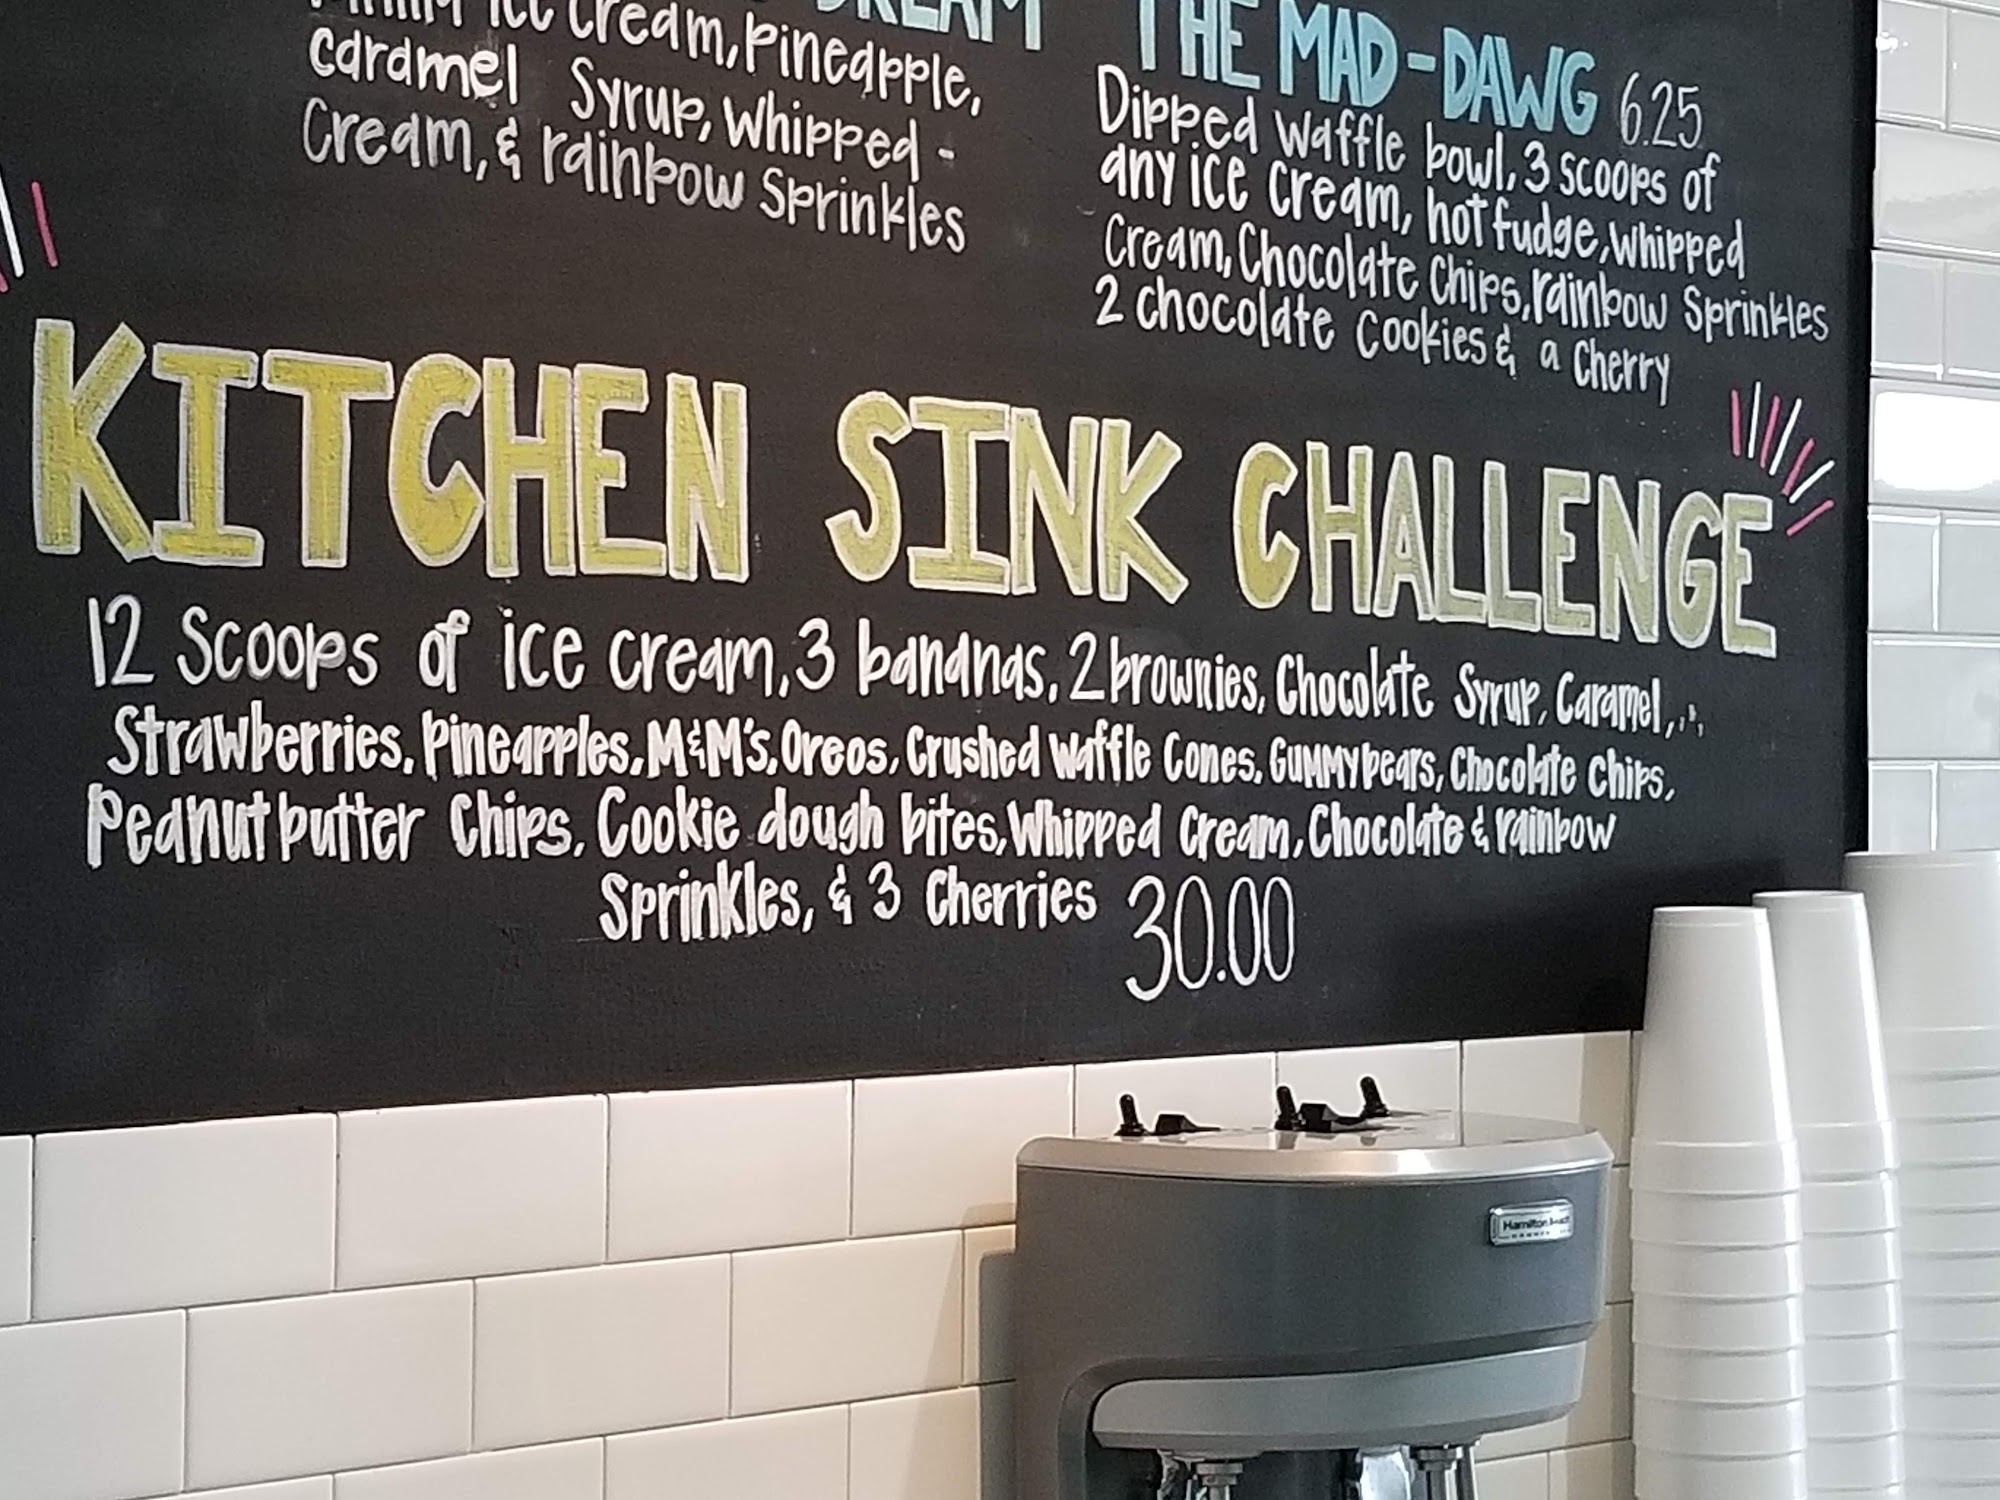 DREAM
ice cream, pineapple,
caramel Syrup, Whipped -
Cream, & rainbow Sprinkles
THE MAD-DAWG 6.25
Dipped Waffle bowl, 3 scoops of
any ice cream, hot fudge, Whipped
Cream, Chocolate Chips, rainbow Sprinkles
2 chocolate Cookies & a Cherry
KITCHEN SINK CHALLENGE
12 Scoops of ice cream, 3 bananas, 2 brownies, Chocolate Syrup, Caramel,
Strawberries, Pineapples, M&M's, Oreos, Crushed Waffle Cones, Gummybears, Chocolate Chips,
Peanutbutter Chips, Cookie dough bites, Whipped Cream, Chocolate & rainbow
Sprinkles, & 3 Cherries 30.00
Hamilton Beach